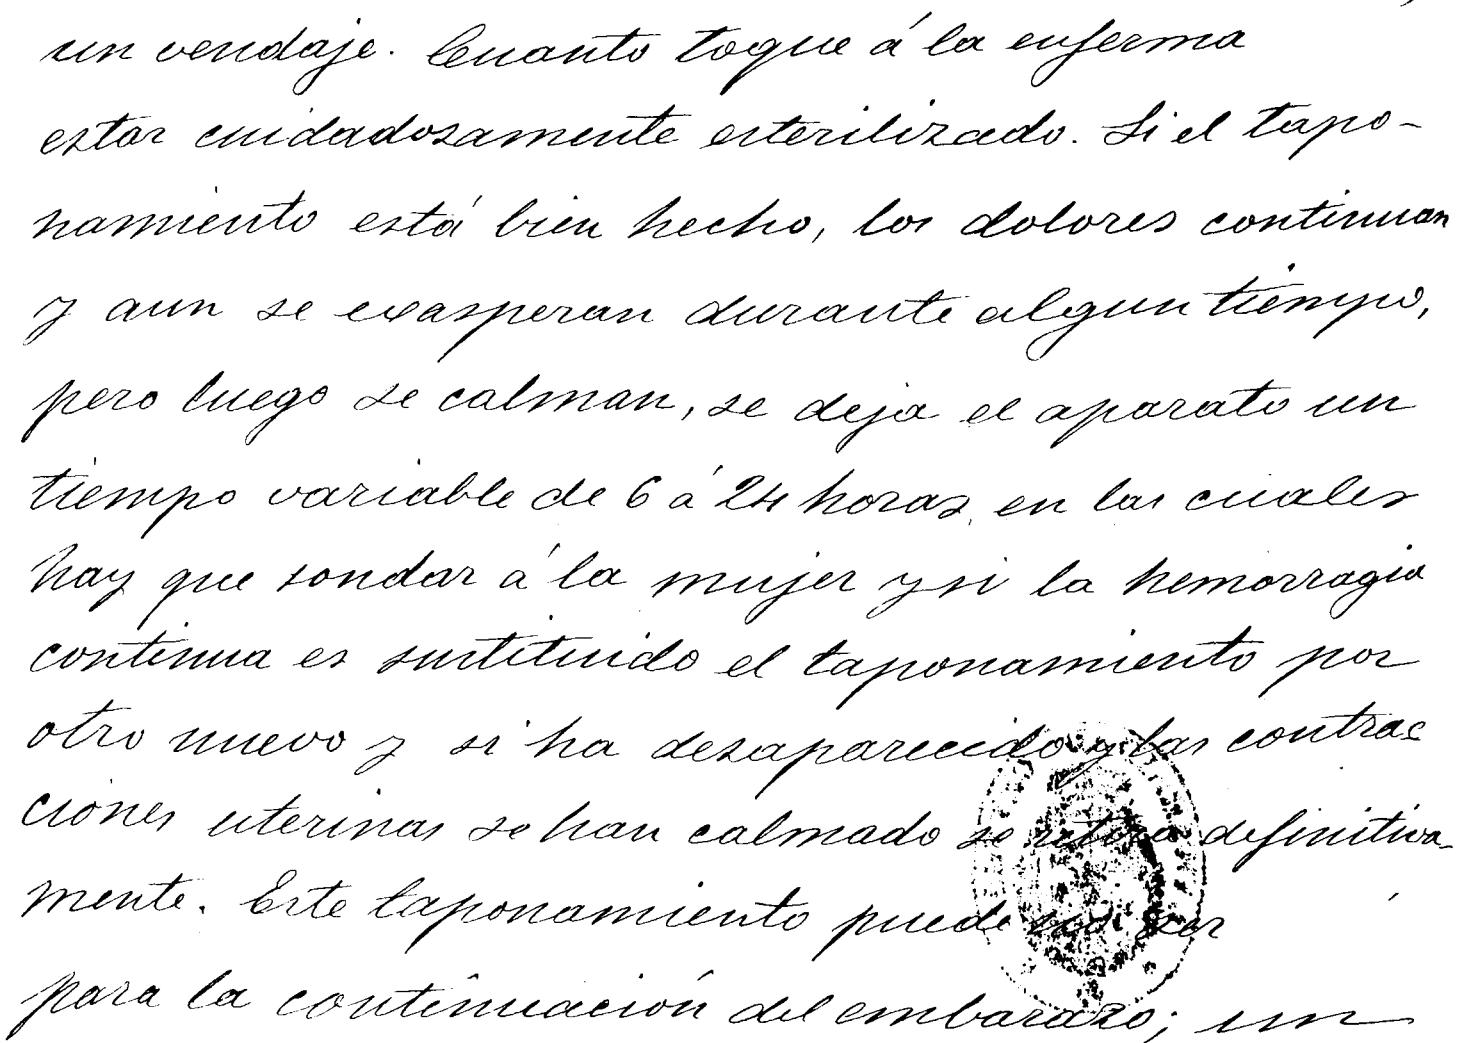 un vendaje. Cuanto toque á la enferma
estar cuidadosamente esterilizado. Si el tapo-
namiento está bien hecho, los dolores continuan
y aun se exasperan durante algun tiempo,
pero luego se calman, se deja el aparato un
tiempo variable de 6 á 24 horas, en las cuales
hay que sondar á la mujer y si la hemorragia
continua es sustituido el taponamiento por
otro nuevo y si ha desaparecido y las contrac
ciones uterinas se han calmado se retira definitiva-
mente. Este taponamiento puede ser
para la continuación del embarazo; un